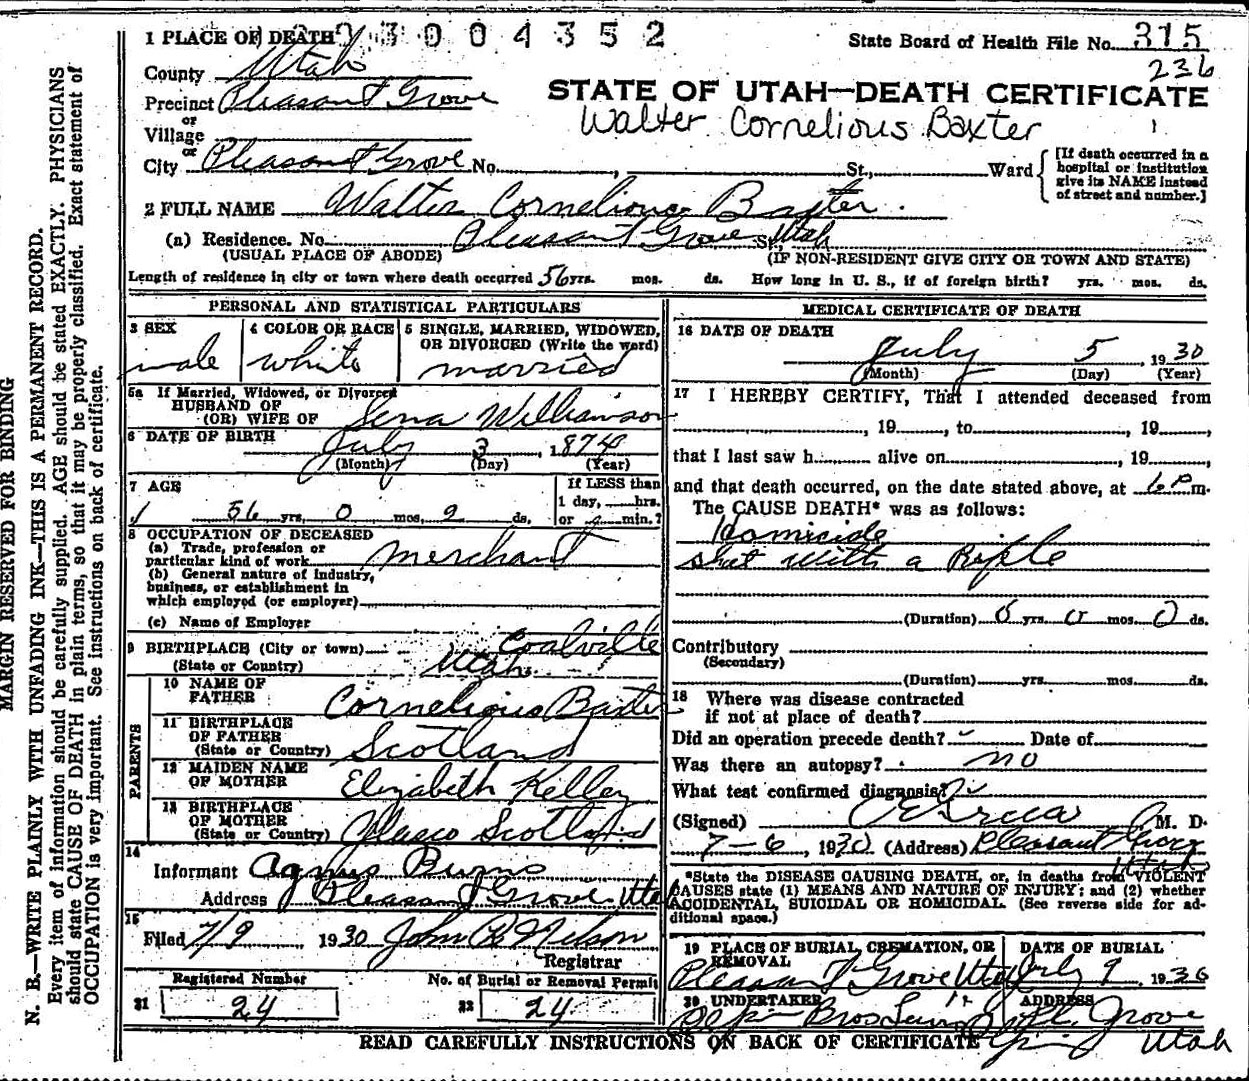 1 PLACE OF DEATH 3004352 State Board of Health File No. 315
County Utah 236
Precinct Pleasant Grove STATE OF UTAH—DEATH CERTIFICATE
or
Village Walter Cornelious Baxter
or
City Pleasant Grove No. St., Ward [If death occurred in a hospital or institution give its NAME instead of street and number.]
2 FULL NAME Walter Cornelious Baxter.
(a) Residence. No. Pleasant Grove St., Utah
(USUAL PLACE OF ABODE) (IF NON-RESIDENT GIVE CITY OR TOWN AND STATE)
Length of residence in city or town where death occurred 56 yrs. mos. ds. How long in U. S., if of foreign birth? yrs. mos. ds.
PERSONAL AND STATISTICAL PARTICULARS
3 SEX male
4 COLOR OR RACE white
5 SINGLE, MARRIED, WIDOWED, OR DIVORCED (Write the word) married
5a If Married, Widowed, or Divorced
HUSBAND OF
(OR) WIFE OF Sena Williamson
6 DATE OF BIRTH July 3, 1874
(Month) (Day) (Year)
7 AGE 56 yrs. 0 mos. 2 ds.
If LESS than 1 day, hrs. or min.?
8 OCCUPATION OF DECEASED
(a) Trade, profession or
particular kind of work merchant
(b) General nature of industry,
business, or establishment in
which employed (or employer)
(c) Name of Employer
9 BIRTHPLACE (City or town) Coalville
(State or Country) Utah
PARENTS
10 NAME OF
FATHER Cornelious Baxter
11 BIRTHPLACE
OF FATHER
(State or Country) Scotland
12 MAIDEN NAME
OF MOTHER Elizabeth Kelley
13 BIRTHPLACE
OF MOTHER
(State or Country) Scotland
14
Informant Agnus Burns
Address Pleasant Grove Utah
15
Filed 7/9 1930 John B Nelson
Registrar
Registered Number No. of Burial or Removal Permit
21 24 22 24
MEDICAL CERTIFICATE OF DEATH
16 DATE OF DEATH
July 5, 1930
(Month) (Day) (Year)
17 I HEREBY CERTIFY, That I attended deceased from
, 19 , to , 19 ,
that I last saw h alive on , 19 ,
and that death occurred, on the date stated above, at 6 P m.
The CAUSE DEATH* was as follows:
Homicide
shot with a Rifle
(Duration) 0 yrs. 0 mos. 0 ds.
Contributory
(Secondary)
(Duration) yrs. mos. ds.
18 Where was disease contracted
if not at place of death?
Did an operation precede death? Date of
Was there an autopsy? no
What test confirmed diagnosis?
(Signed) M. D.
7-6, 1930 (Address) Pleasant Grove
Utah
*State the DISEASE CAUSING DEATH, or, in deaths from VIOLENT
CAUSES state (1) MEANS AND NATURE OF INJURY; and (2) whether
ACCIDENTAL, SUICIDAL OR HOMICIDAL. (See reverse side for additional space.)
19 PLACE OF BURIAL, CREMATION, OR REMOVAL DATE OF BURIAL
Pleasant Grove Utah July 9, 1930
20 UNDERTAKER ADDRESS
Bros Pl. Grove
Utah
READ CAREFULLY INSTRUCTIONS ON BACK OF CERTIFICATE
MARGIN RESERVED FOR BINDING
N. B.—WRITE PLAINLY WITH UNFADING INK—THIS IS A PERMANENT RECORD.
Every item of information should be carefully supplied. AGE should be stated EXACTLY. PHYSICIANS
should state CAUSE OF DEATH in plain terms, so that it may be properly classified. Exact statement of
OCCUPATION is very important. See instructions on back of certificate.